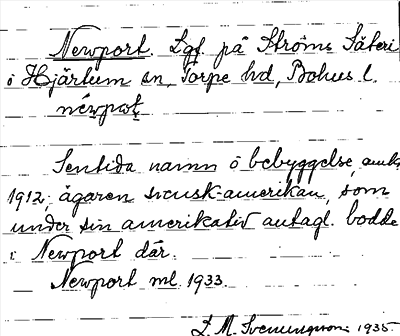 Newport. Lgf. på Ströms Säteri
i Hjärtum sn, Torpe hd, Bohus l.
néwpoṛt
Sentida namn å bebyggelse, omkr.
1912; ägaren svensk-amerikan, som
under sin amerikativ antagl. bodde
i Newport där.
Newport ml. 1933.
D. M. Svenningsson 1935.